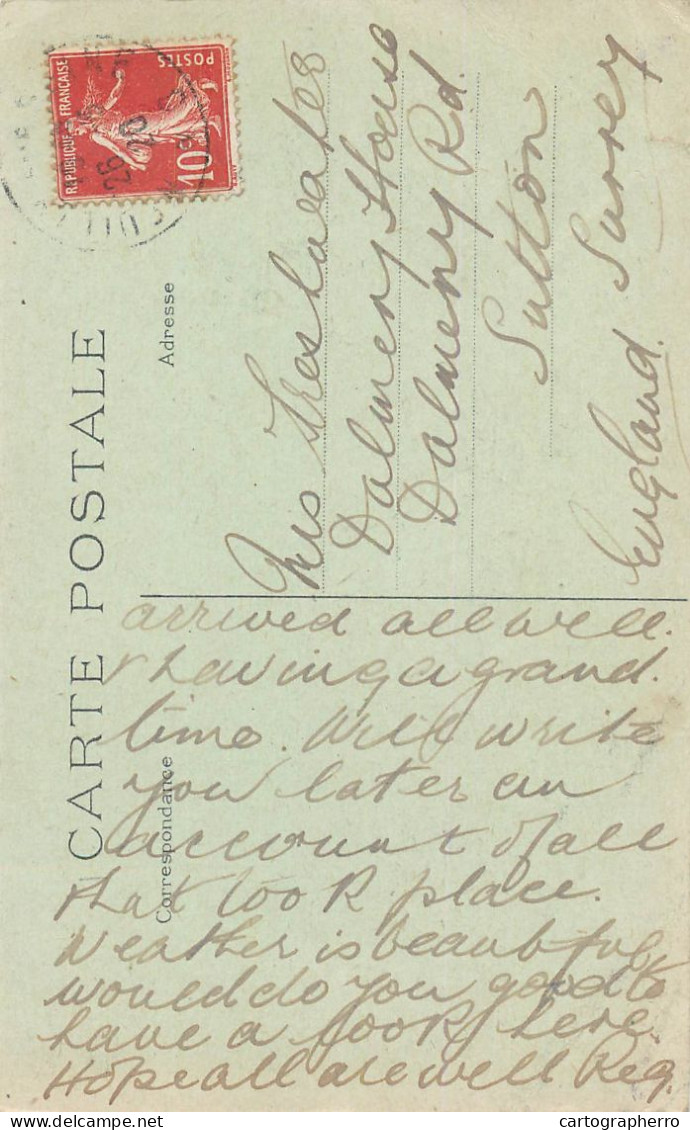 CARTE POSTALE
Correspondance
Adresse
REPUBLIQUE FRANÇAISE
POSTES
10c
26
20
Mrs
Dalmeny House
Dalmeny Rd.
Sutton
England. Surrey
arrived all well.
& having a grand.
time. Will write
you later an
account of all
that took place.
Weather is beautiful
would do you good to
have a look here.
Hope all are well Reg.
cartographerro